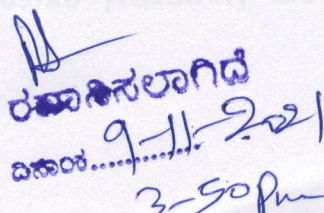 ರವಾನಿಸಲಾಗಿದೆ
ದಿನಾಂಕ......9-11-2021
3-50 Pm